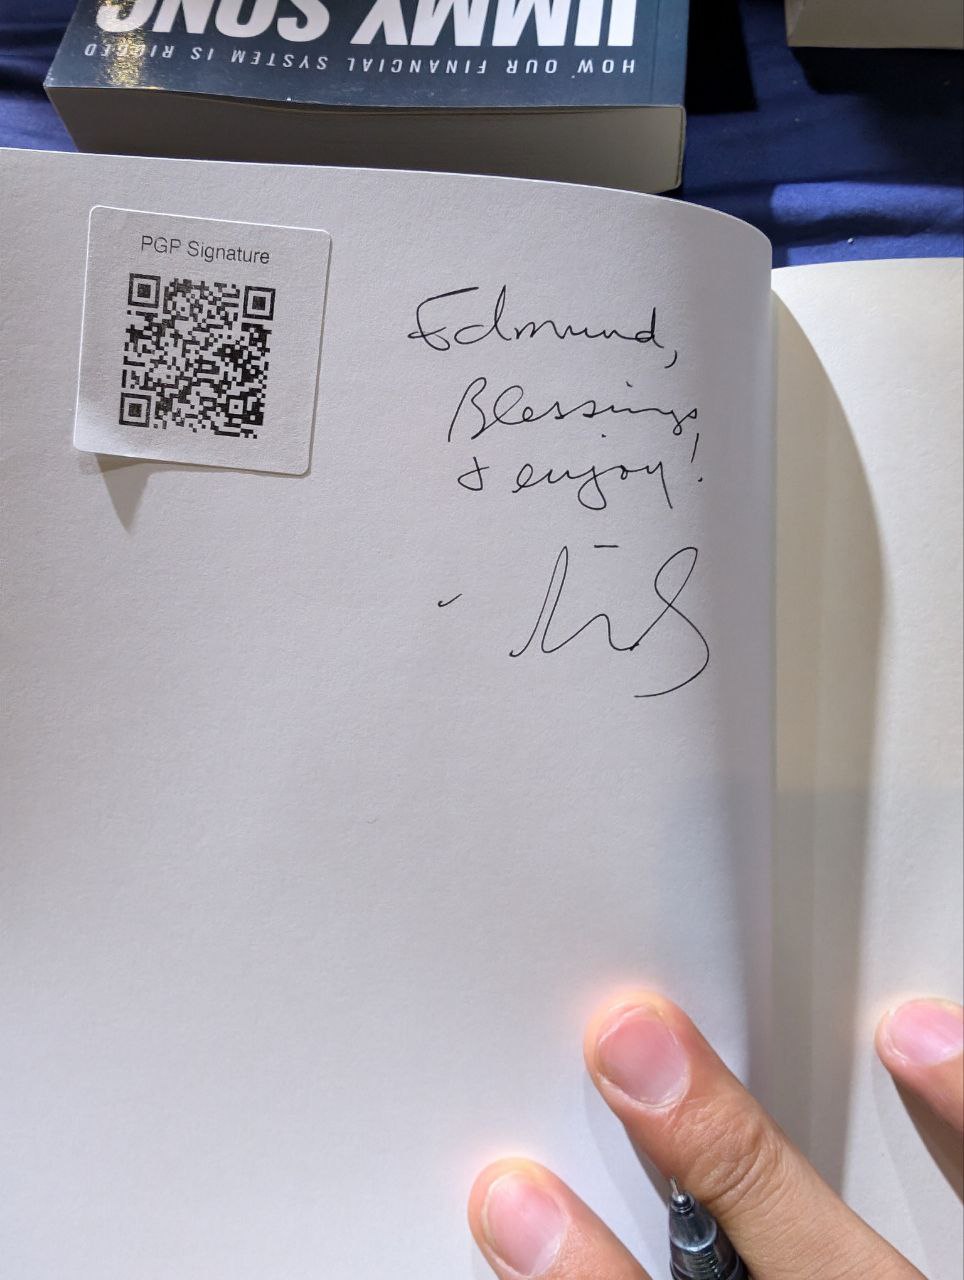 JIMMY SONG
HOW OUR FINANCIAL SYSTEM IS RIGGED
PGP Signature
Edmund,
Blessings
& enjoy!